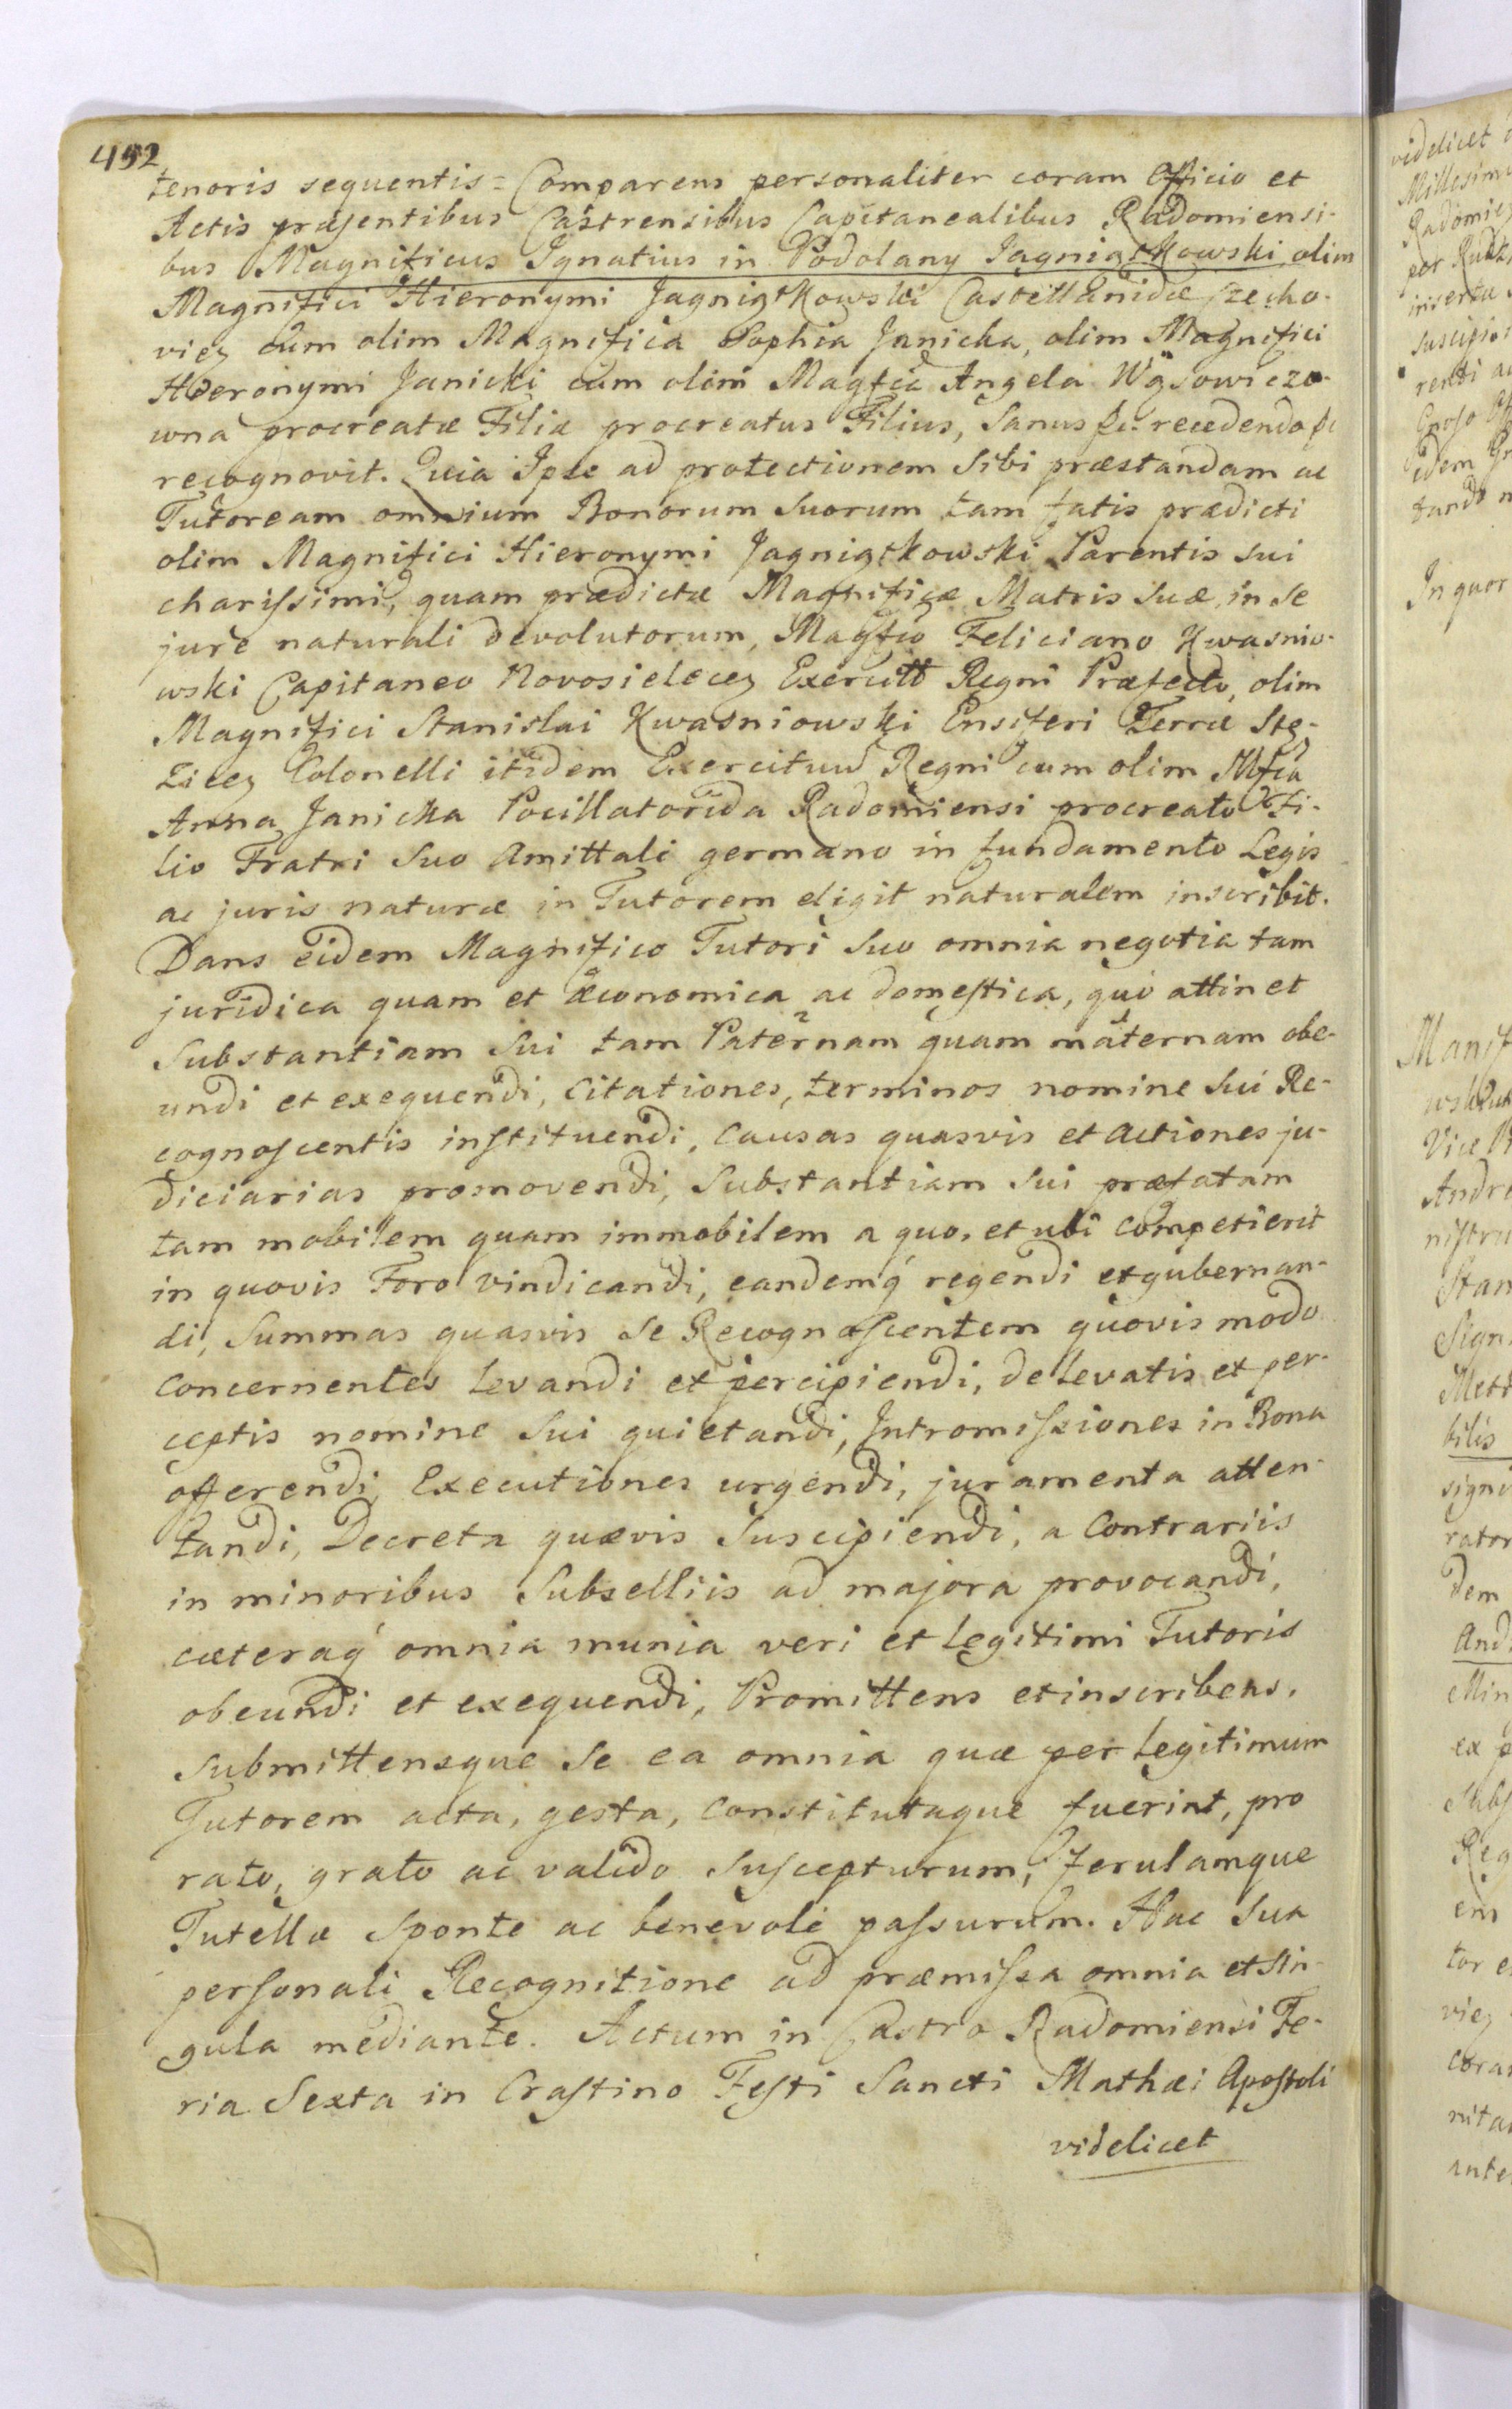 492
tenoris sequentis = Comparens personaliter coram Officio et
Actis præsentibus Castrensibus Capitanealibus Radomiensi-
bus Magnificus Ignatius in Podolany Jagniątkowski olim
Magnifici Hieronymi Jagniątkowski Castellanidæ Czecho-
viez cum olim Magnifica Sophia Janicka, olim Magnifici
Hieronymi Janicki cum olim Magfica Angela Wąsowiczo-
wna procreatæ Filia procreatus Filius, Sanus &c. recedendo &c
recognovit. Quia Ipse ad protectionem Sibi præstandam ac
Tutoream omnium Bonorum Suorum tam fatis prædicti
olim Magnifici Hieronymi Jagniątkowski Parentis sui
charissimi, quam prædictæ Magnificæ Matris Suæ, in Se
jure naturali devolutorum, Magfco Feliciano Kwasnio-
wski Capitaneo Novosielecez Exercitt Regni Præfecto, olim
Magnifici Stanislai Kwasniowski Ensiferi Terræ Stę-
zicez Colonelli itidem Exercituus Regni cum olim Mfca
Anna Janicka Pocillatorida Radomiensi procreato Fi-
lio Fratri Suo Amittali germano in fundamento Legis
ac juris naturæ in Tutorem eligit naturalem inscribit.
Dans eidem Magnifico Tutori Suo omnia negotia tam
juridica quam et æconomica ac domestica, quo attinet
Substantiam Sui tam Paternam quam maternam obe-
undi et exequendi, Citationes, terminos nomine Sui Re-
cognoscentis instituendi, Causas quasvis et actiones ju-
diciarias promovendi, Substantiam Sui præfatam
tam mobilem quam immobilem a quo, et ubi Competierit
in quovis Foro vindicandi, eandemq́ regendi et gubernan-
di, Summas quasvis Se Recognoscentem quovis modo
Concernentes Levandi et percipiendi, de Levatis et per-
ceptis nomine Sui quietandi, Intromissiones in Bona
offerendi, Executiones urgendi, juramenta atten-
tandi, Decreta quævis Suscipiendi, a Contrariis
in minoribus Subselliis ad majora provocandi,
cæteraq́ omnia munia veri et Legitimi Tutoris
obeundi et exequendi, Promittens et inscribens,
Submittensque Se ea omnia quæ per Legitimum
Tutorem acta, gesta, Constitutaque fuerint, pro
rato, grato ac valido Suscepturum, Ferulamque
Tutellæ Sponte ac benevole passurum. Hac Sua
personali Recognitione ad præmissa omnia et Sin-
gula mediante. Actum in Castro Radomiensi Fe-
ria Sexta in Crastino Festi Sancti Mathæi Apostoli
videlicet